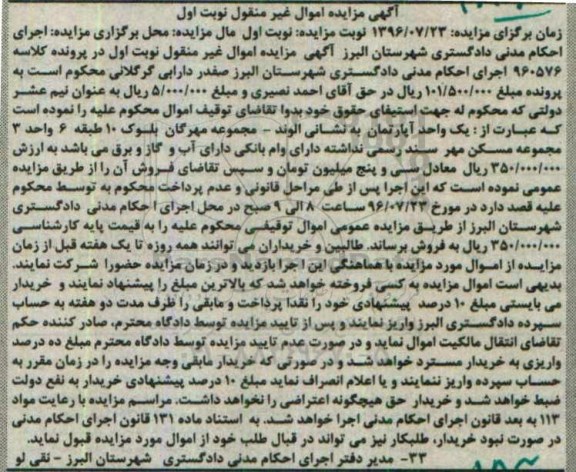 آگهی مزایده اموال غیر منقول نوبت اول
زمان برگزای مزایده: ۱۳۹۶/۰۷/۲۳ نوبت مزایده: نوبت اول مال مزایده: محل برگزاری مزایده: اجرای
احکام مدنی دادگستری شهرستان البرز آگهی مزایده اموال غیر منقول نوبت اول در پرونده کلاسه
۹۶۰۵۷۶ اجرای احکام مدنی دادگستری شهرستان البرز صفدر دارابی گرگلانی محکوم است به
پرونده مبلغ ۱۰۱/۵۰۰/۰۰۰ ریال در حق آقای احمد نصیری و مبلغ ۵/۰۰۰/۰۰۰ ریال به عنوان نیم عشر
دولتی که محکوم له جهت استیفای حقوق خود بدوا تقاضای توقیف اموال محکوم علیه را نموده است
که عبارت از : یک واحد آپارتمان به نشانی الوند - مجموعه مهرگان بلوک ۱۰ طبقه ۶ واحد ۳
مجموعه مسکن مهر سند رسمی نداشته دارای وام بانکی دارای آب و گاز و برق می باشد به ارزش
۳۵۰/۰۰۰/۰۰۰ ریال معادل سی و پنج میلیون تومان و سپس تقاضای فروش آن را از طریق مزایده
عمومی نموده است که این اجرا پس از طی مراحل قانونی و عدم پرداخت محکوم به توسط محکوم
علیه قصد دارد در مورخ ۹۶/۰۷/۲۳ ساعت ۸ الی ۹ صبح در محل اجرای احکام مدنی دادگستری
شهرستان البرز از طریق مزایده عمومی اموال توقیفی محکوم علیه را به قیمت پایه کارشناسی
۳۵۰/۰۰۰/۰۰۰ ریال به فروش برساند. طالبین و خریداران می توانند همه روزه تا یک هفته قبل از زمان
مزایده از اموال مورد مزایده با هماهنگی این اجرا بازدید و در زمان مزایده حضورا شرکت نمایند.
بدیهی است اموال مزایده به کسی فروخته خواهد شد که بالاترین مبلغ را پیشنهاد نمایند و خریدار
می بایستی مبلغ ۱۰ درصد پیشنهادی خود را نقدا پرداخت و مابقی را ظرف مدت دو هفته به حساب
سپرده دادگستری البرز واریز نمایند و پس از تایید مزایده توسط دادگاه محترم، صادر کننده حکم
تقاضای انتقال مالکیت اموال نماید و در صورت عدم تایید مزایده توسط دادگاه محترم مبلغ ده درصد
واریزی به خریدار مسترد خواهد شد و در صورتی که خریدار مابقی وجه مزایده را در زمان مقرر به
حساب سپرده واریز ننمایند و یا اعلام انصراف نماید مبلغ ۱۰ درصد پیشنهادی خریدار به نفع دولت
ضبط خواهد شد و خریدار حق هیچگونه اعتراضی را نخواهد داشت. مراسم مزایده با رعایت مواد
۱۱۳ به بعد قانون اجرای احکام مدنی اجرا خواهد شد. به استناد ماده ۱۳۱ قانون اجرای احکام مدنی
در صورت نبود خریدار، طلبکار نیز می تواند در قبال طلب خود از اموال مورد مزایده قبول نماید.
۳۳- مدیر دفتر اجرای احکام مدنی دادگستری شهرستان البرز - نقی لو